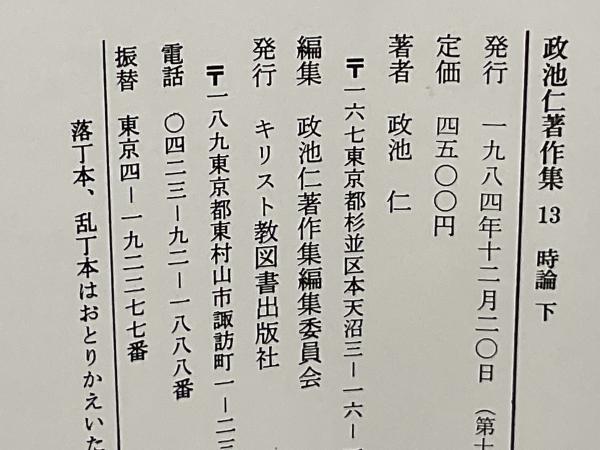 政池仁著作集 13 時論 下
発行 一九八四年十二月二〇日 (第十
定価 四五〇〇円
著者 政池 仁
〒一六七東京都杉並区本天沼三ー一六ー
編集 政池仁著作集編集委員会
発行 キリスト教図書出版社
〒一八九東京都東村山市諏訪町一ー二三
電話 〇四二三ー九二ー一八八八番
振替 東京四ー一九二二七七番
落丁本、乱丁本はおとりかえいた